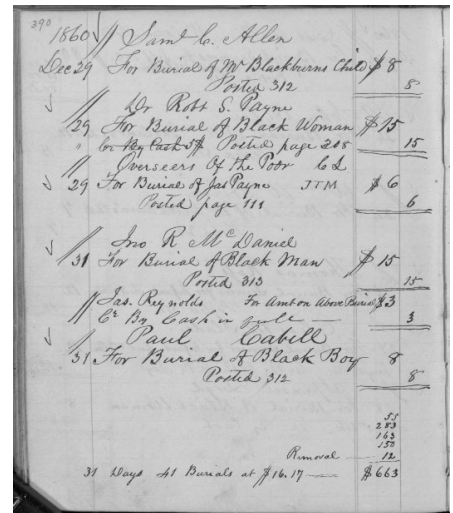 290
1860 // Saml C. Allen
Dec 29 For Burial of Mr Blackburns Child $ 8
Posted 312 8
// Dr Robt S. Payne
29 For Burial of Black Woman $ 15
" Cr By Cash 5$ Posted page 208 15
// Overseers Of the Poor C L
29 For Burial of Jas Payne JTM $ 6
Posted page 111 6
// Jno R McDaniel
31 For Burial of Black Man $ 15
Posted 313 15
// Jas. Reynolds For Amt on Above Burial $3
Cr By Cash in full — 3
// Paul Cabell
31 For Burial of Black Boy 8
Posted 312 8
55
283
163
150
Removal — 12
31 Days 41 Burials at $16.17 — $663